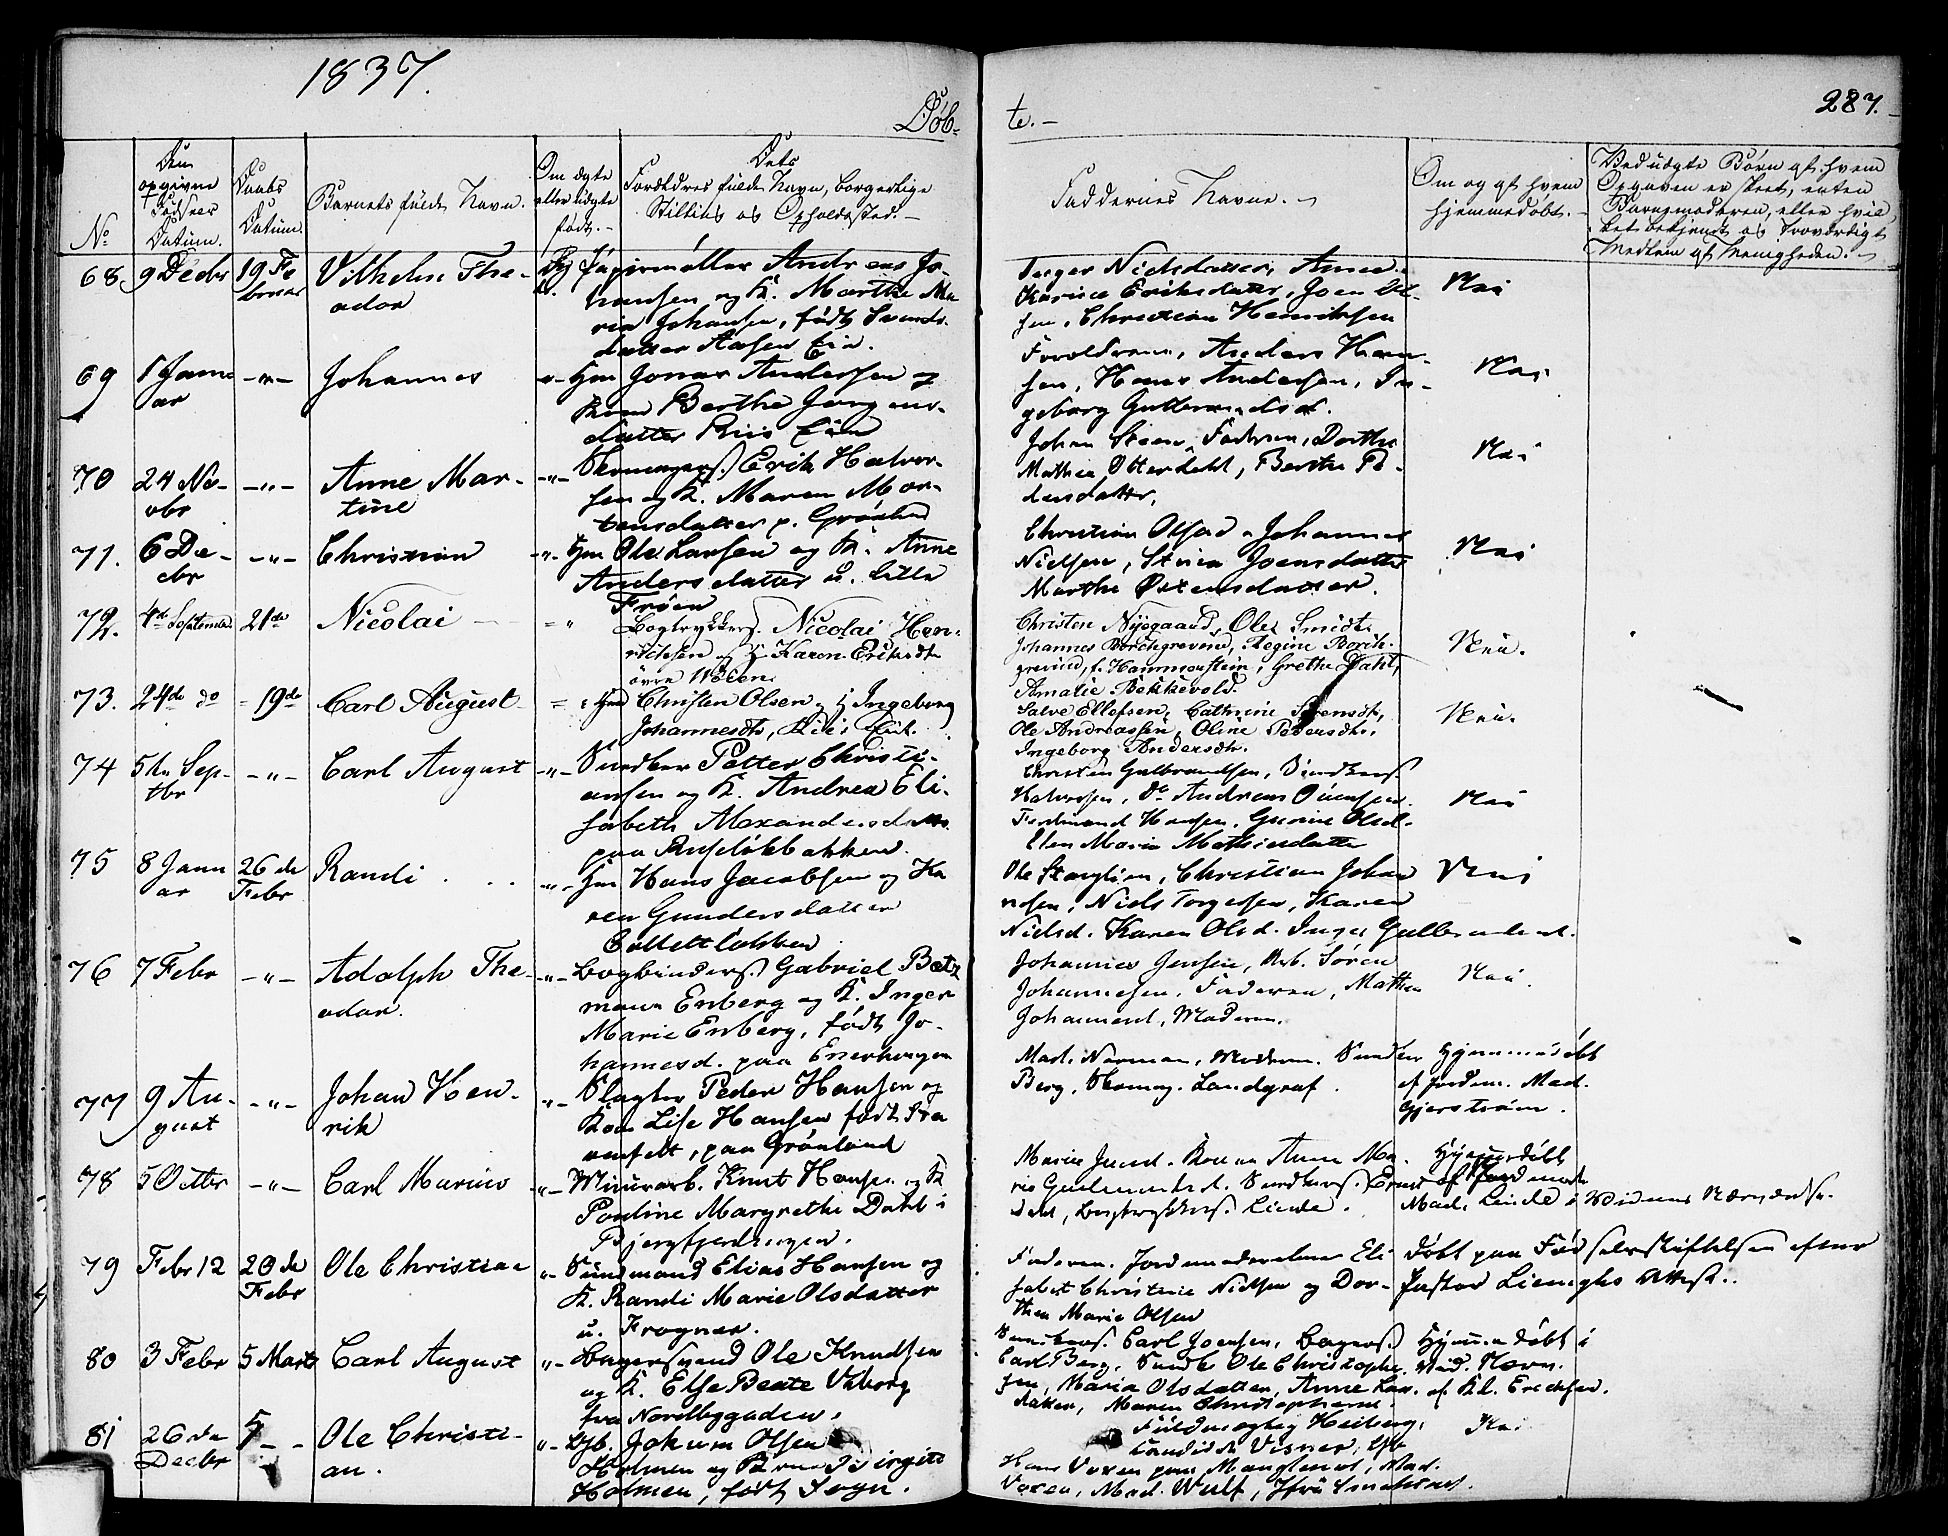 1837.
Døb-
te.-
287.
No
Den opgivne Fødsels Datum.
Daabs Datum.
Barnets fulde Navn.
Om ægte eller uægte født.-
Dets Forældres fulde Navn, borgerlige Stilling og Opholdssted.-
Faddernes Navne.-
Om og af hvem hjemmedøbt.-
Ved uægte Børn af hvem Opgaven er skeet, enten Barnemoderen, eller hvilket bekjendt og troværdigt Medlem af Menigheden.-
68. 9 Decbr 19 Februar Vilhelm The-
odor
Papirmøller Andreas Jo-
hansen og K. Marthe Ma-
ria Johansen, født Svends-
datter Aasen Eie.
Inger Nielsdatter, Anne
Karine Eriksdatter, Joen Ol-
sen, Christian Henriksen
Nei
69 1 Janu
ar -"- Johannes
Hm Jonas Andersen og
Kone Berthe Jørgens-
datter Riis Eie
Forældrene, Anders Han-
sen, Hans Andersen, In-
geborg Gulbrandsd.
Nei
70 24 No-
vbr -"- Anne Mar-
tine
-"- Skomagers. Erik Halvor-
sen og K. Maren Mor-
tensdatter p. Grønland
Johan Steen, Faderen, Dorthe
Mathea Otterdahl, Berthe Pe-
dersdatter.
Nei
71. 6 De-
cbr -"- Christian
-"- Hm Ole Larsen og K. Anne
Andersdatter u. Lille
Frøen
Christian Olsen, Johannes
Nielsen, Stina Joensdatter
Marthe Østensdatter.
Nei
72. 4de September 21de Nicolai
Bogtrykkers. Nicolai Hen-
richsen og K. Karen Eriksdt.
øvre Volden.
Christen Nysgaard, Ole Smidt,
Johannes Borchgrevink, Regine Borch-
grevink, f. Hammerstein, Grethe Dahl,
Amalie Bekkevold.
Nei.
73. 24de do - 19de Carl August
Hm Christen Olsen og K Ingeborg
Johannesdt, Riis Eie.
Salve Ellefsen, Cathrine Sørensdt,
Ole Andreassen, Oline Pedersdt,
Ingeborg Andersdt.
Nei.
74 5te Sep-
tbr -"- Carl August
-"- Snedker Petter Christi-
ansen og K. Andrea Eli-
sabeth Alexandersdatter
paa Ruseløkbakken.
Christen Gulbrandsen, Snedkers.
Halvorsen, do Andreas Svensen
Ferdinand Hansen, Gurine Olsd.
Elen Maria Mathisdatter
Nei
75 8 Janu
ar 26de
Febr Randi
-"- Hm Hans Jacobsen og Ka
ren Gundersdatter
Collettløkken
Ole Stanglien, Christian Johan
nsen, Niels Torgersen, Karen
Nielsd. Karen Olsd. Inger Gulbrandsd.
Nei
76 7 Febr -"- Adolph The-
odor.
-"- Bogbinders. Gabriel Betz
mann Enberg og K. Inger
Marie Enberg, født Jo-
hannesd. paa Enerhaugen
Johannes Jensen, Arb. Søren
Johannesen, Faderen, Mathea
Johannesd, Moderen.
Nei.
77 9 Au-
gust -"- Johan Hen-
rik
-"- Slagter Peder Hansen og
Kone Lise Hansen født
paa Grønland
Mad. Norman, Moderen. Snedker
Berg, Skomag. Landgraf.
Hjemmedøbt
af Jordem. Mad.
Gjerstrøm.
78 5 Octbr -"- Carl Marius
-"- Muurarb. Knut Hansen og K
Pouline Margrethe Dahl i
Pjerfjerdingen.
Maria Jensd. Konen Anne Ma-
rie Gulbrandsd. Snedkers. Ernst
Dahl, Bogtrykkers. Linde.
Hjemmedøbt
af Jordemoder
Mad. Linde i Vidners Nærværelse.
79 Febr 12 26de
Febr Ole Christian
-"- Sundmand Elias Hansen og
K. Randi Marie Olsdatter
u. Frogner.
Faderen. Jordemoderelever Eli
sabet Christine Nielsen og Dor-
thea Marie Olsen
Døbt paa Fødselsstiftelsen efter
Pastor Attest.
80 3 Febr 5 Marts Carl August
-"- Bagersvend Ole Knudsen
og K. Else Beate Viborg
fra Nordbygaden.
Snedkers. Carl Joensen, Bagers.
Carl Berg, Snedk. Ole Christophe
sen, Maria Olsdatter, Anne Lar-
datter, Maren Christophersd.
Hjemmedøbt i
Vid. Nærv.
af Kl. Erichsen.
81 26de
Decbr 5 - - Ole Christi-
an.
-"- Jokum Olsen
Holmen og Kone Birgite
Holmen, født
Fuldmægtig Heiberg,
Candidat Visner,
Hans Voxen paa Manglerud, Mad.
Voxen, Mad. Wulf, Jfr
Nei